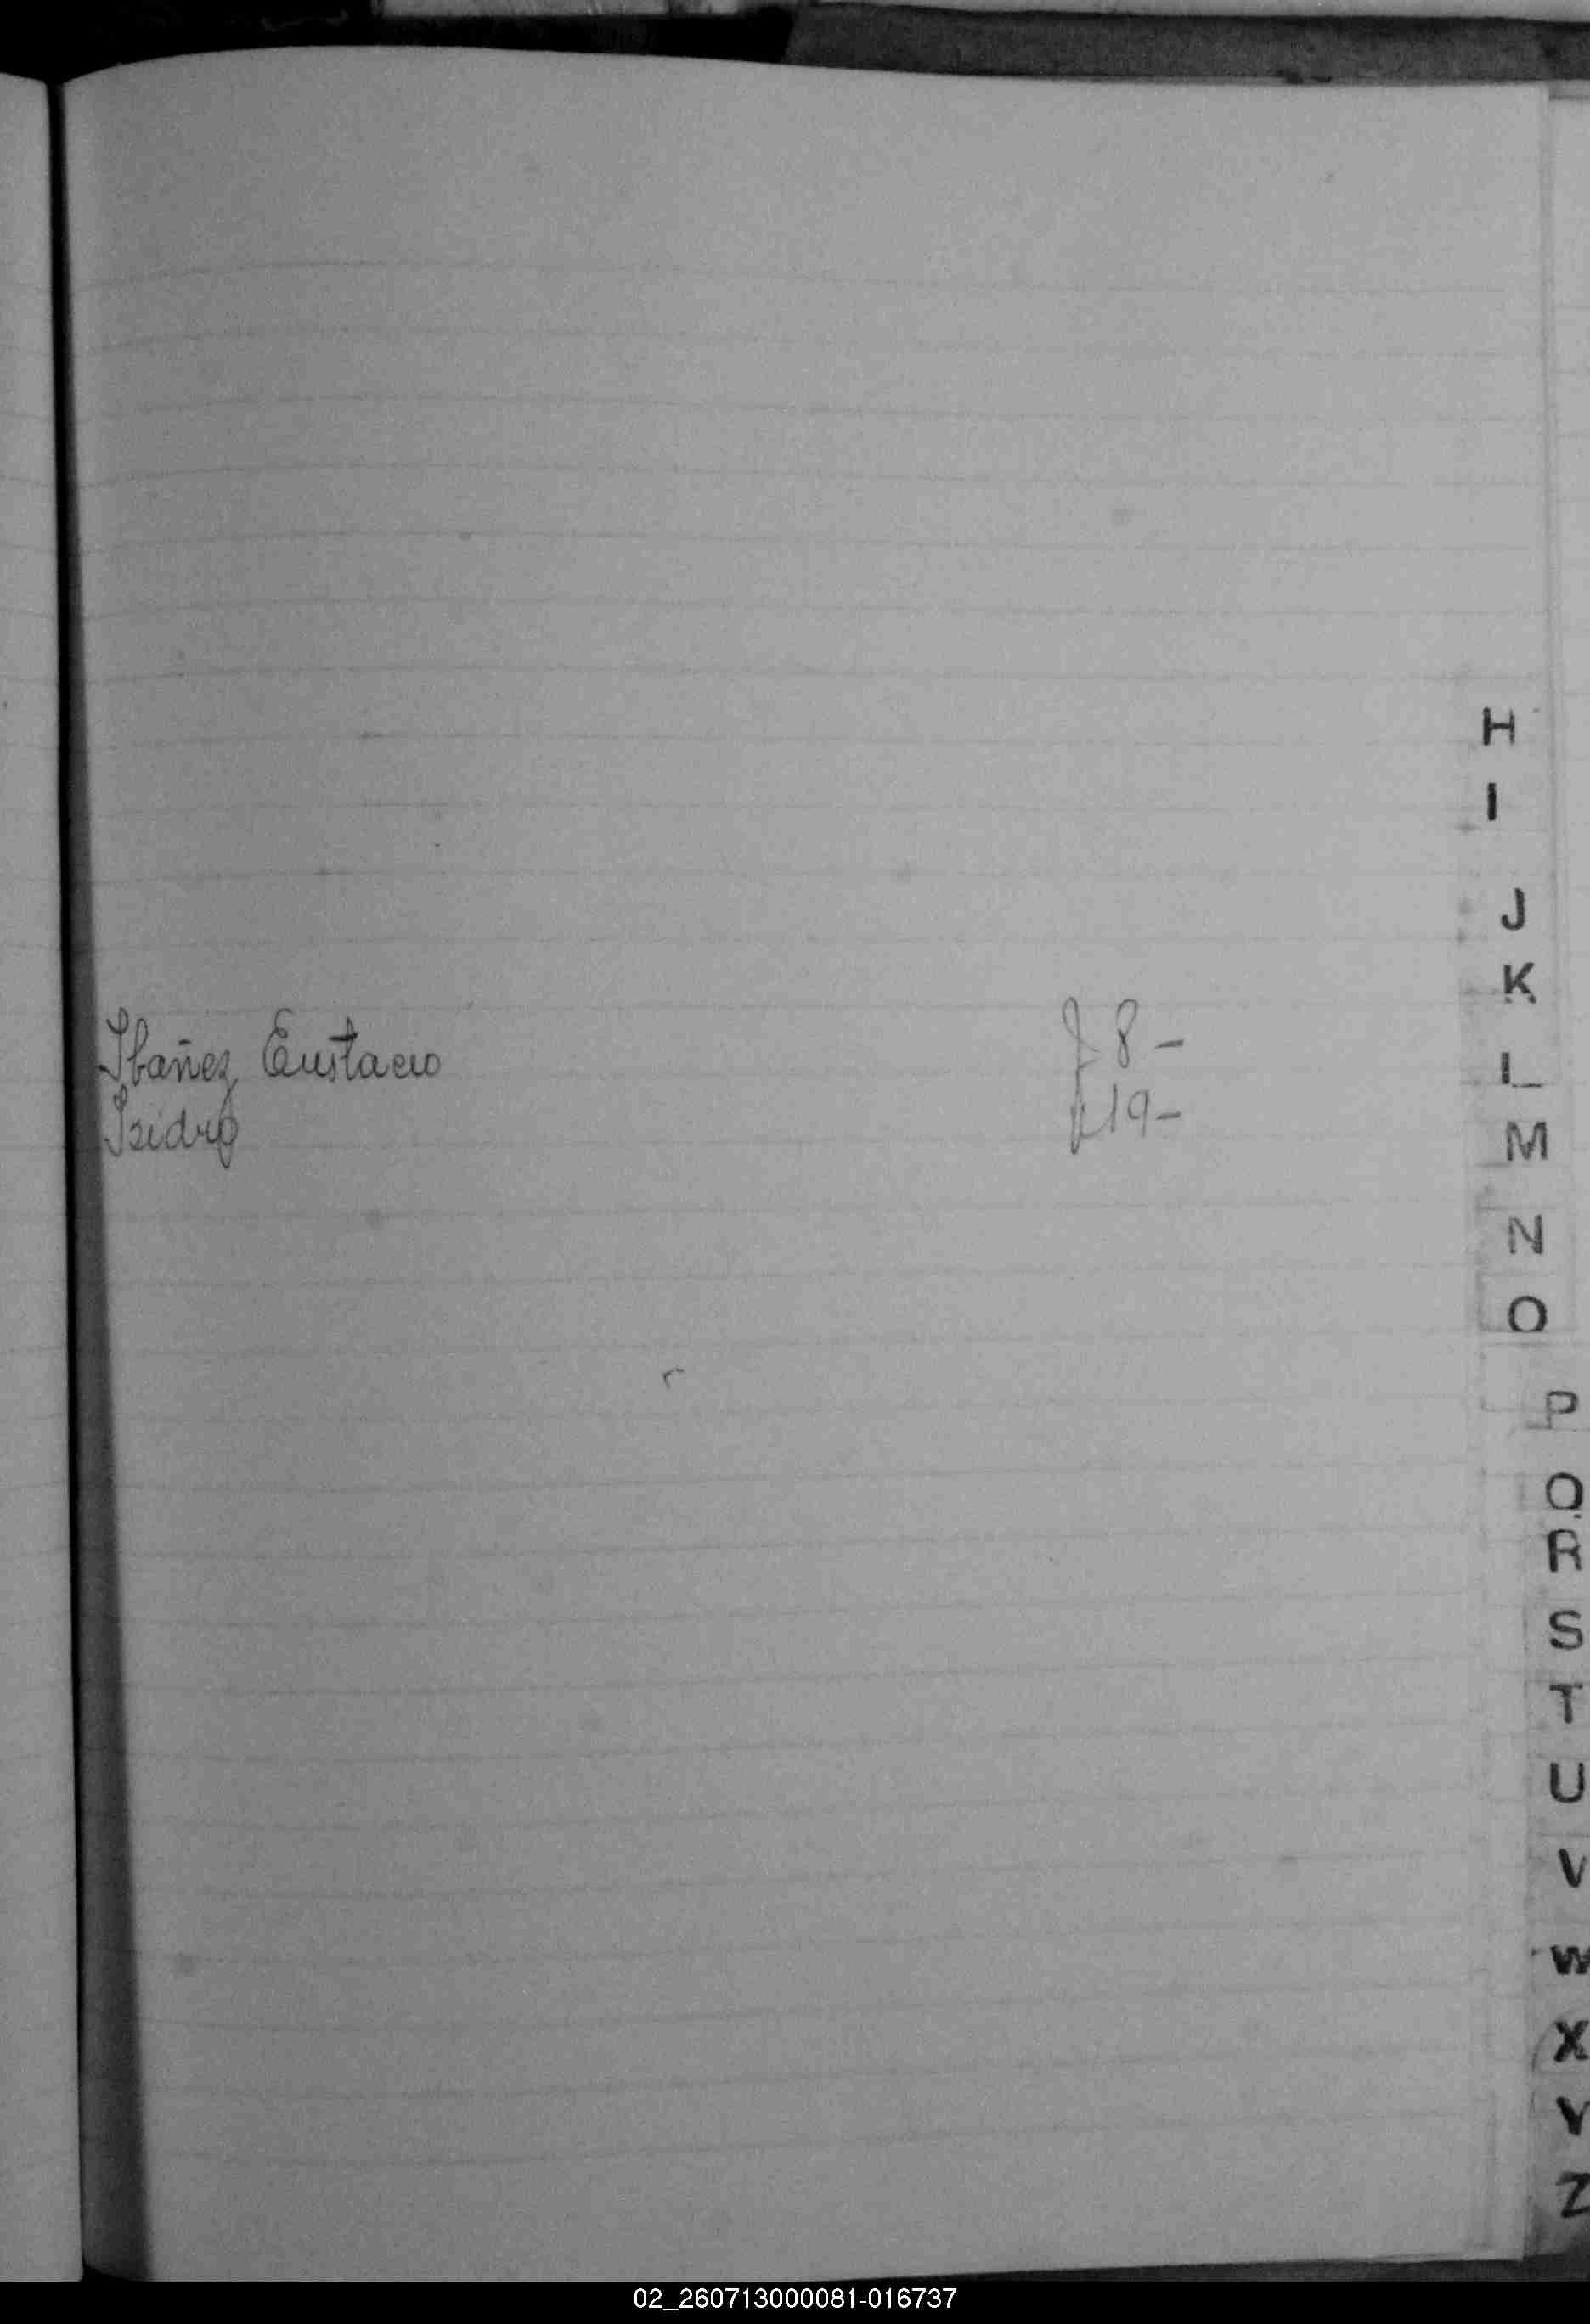 H
I
J
K
Ibañez Eustacio f 8 -
L
Izidro f 19 -
M
N
O
P
Q
R
S
T
U
V
W
X
Y
Z
02_260713000081-016737